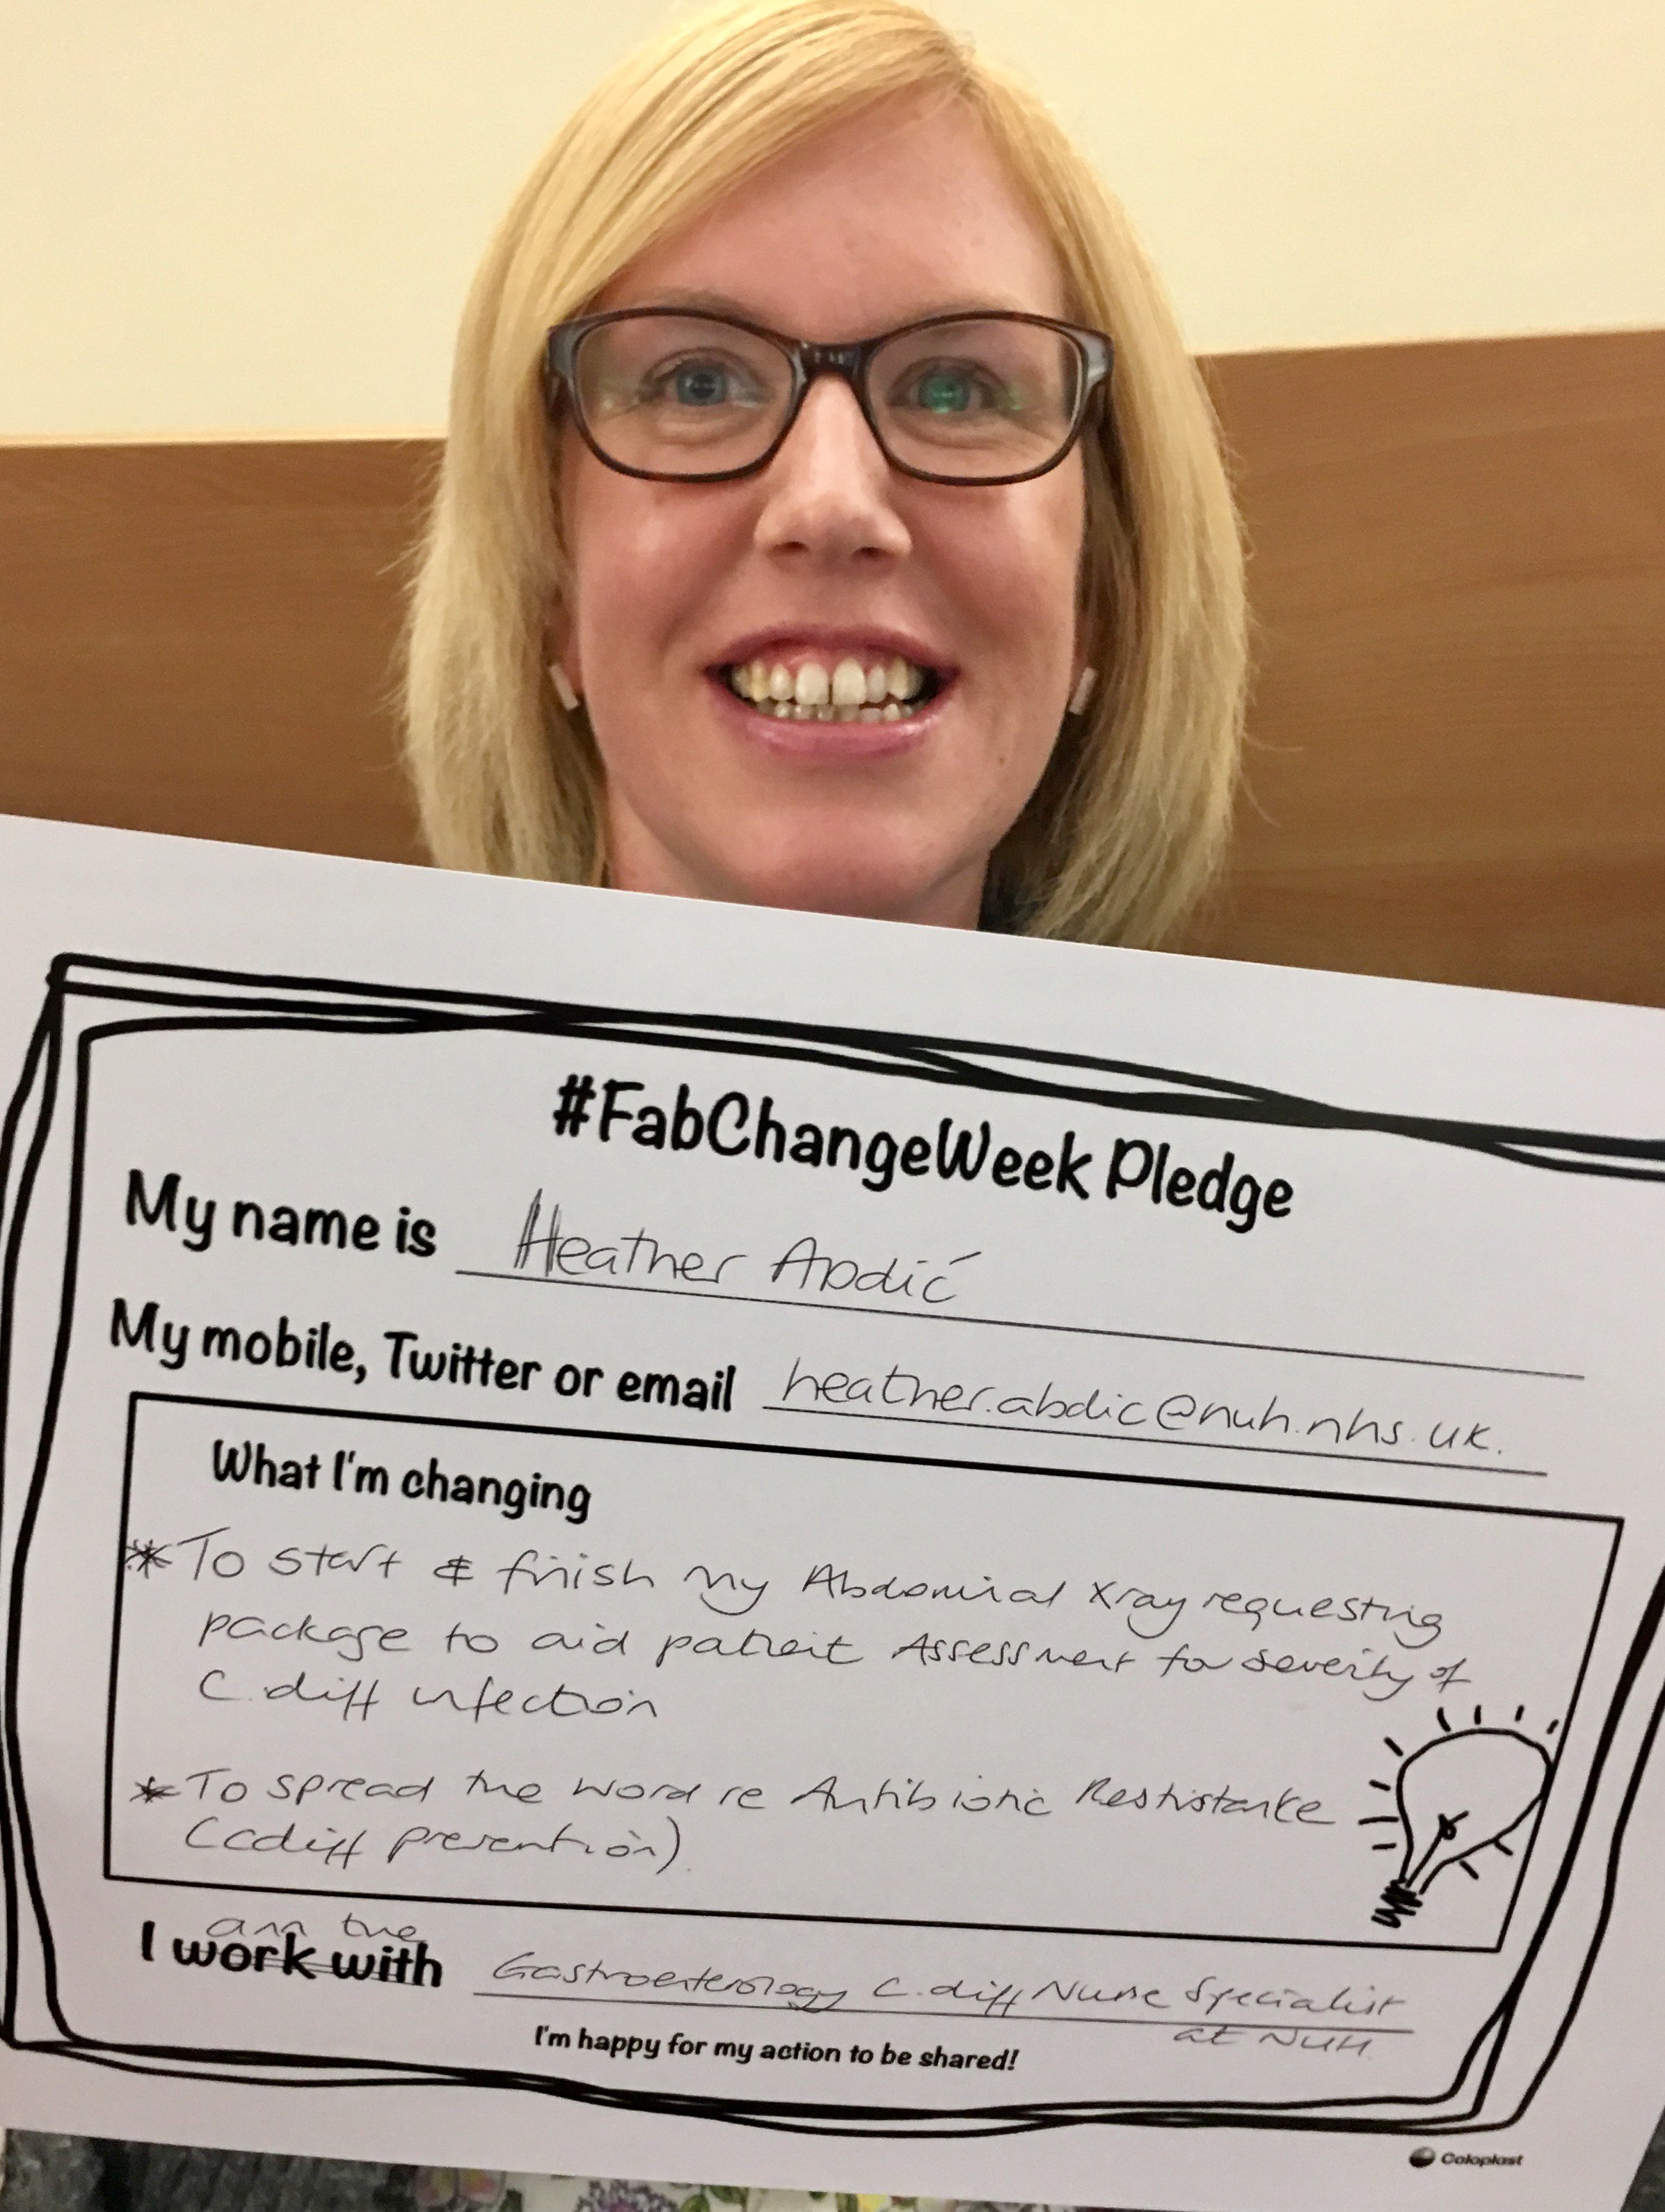 #FabChangeWeek Pledge
My name is Heather Abdić
My mobile, Twitter or email heather.abdic@nuh.nhs.uk.
What I'm changing
* To start & finish my Abdominal Xray requesting
package to aid patient Assessment for severity of
C.diff infection
* To spread the word re Antibiotic Restistance
(Cdiff prevention).
am the
I work with Gastroenterology C.diff Nurse Specialist
at NUH.
I'm happy for my action to be shared!
Coloplast